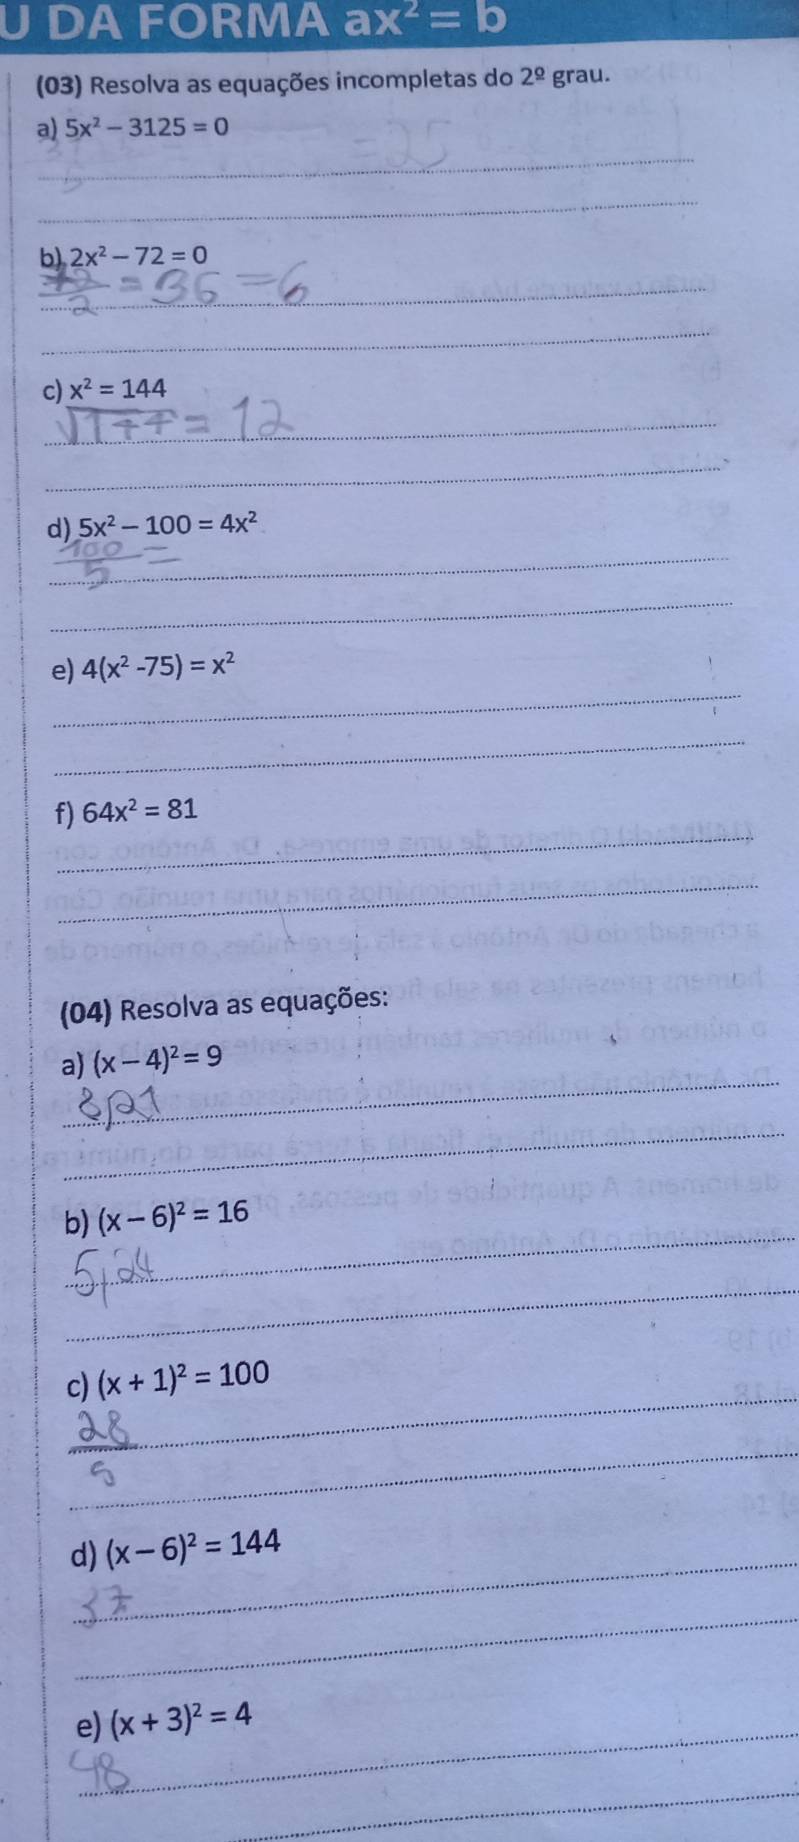 U DA FORMA ax² = b
(03) Resolva as equações incompletas do 2º grau.
a) 5x² – 3125 = 0
= 25
b) 2x² – 72 = 0
72/2 = 36 = 6
c) x² = 144
√144 = 12
d) 5x² – 100 = 4x²
100/5 =
e) 4(x² -75) = x²
f) 64x² = 81
(04) Resolva as equações:
a) (x – 4)² = 9
8,21
b) (x – 6)² = 16
5,24
c) (x + 1)² = 100
28/5
d) (x – 6)² = 144
37
e) (x + 3)² = 4
48